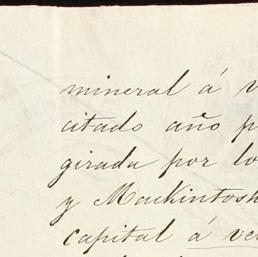 mineral á
citado año
girada por
y Mackintosh
capital á